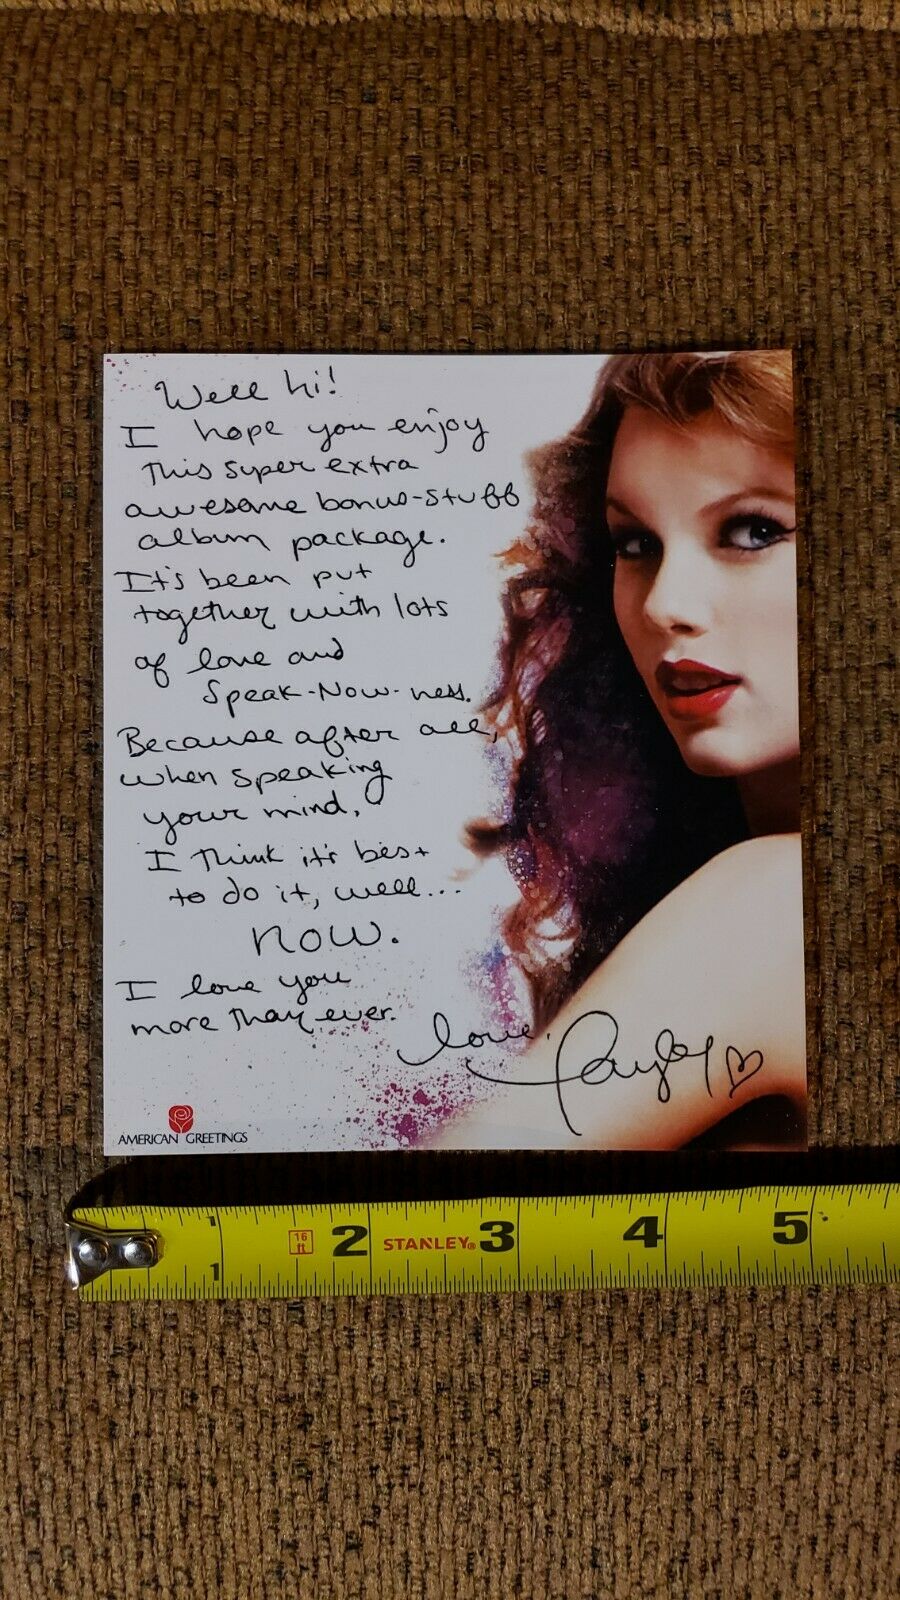 Well hi!
I hope you enjoy
This super extra
awesome bonus-stuff
album package.
It's been put
together with lots
of love and
Speak-Now-ness.
Because after all,
when speaking
your mind,
I think it's best
to do it, well...
NOW.
I love you
more than ever.
Love,
Taylor
AMERICAN GREETINGS
1 16 ft 2 STANLEY® 3 4 5
1